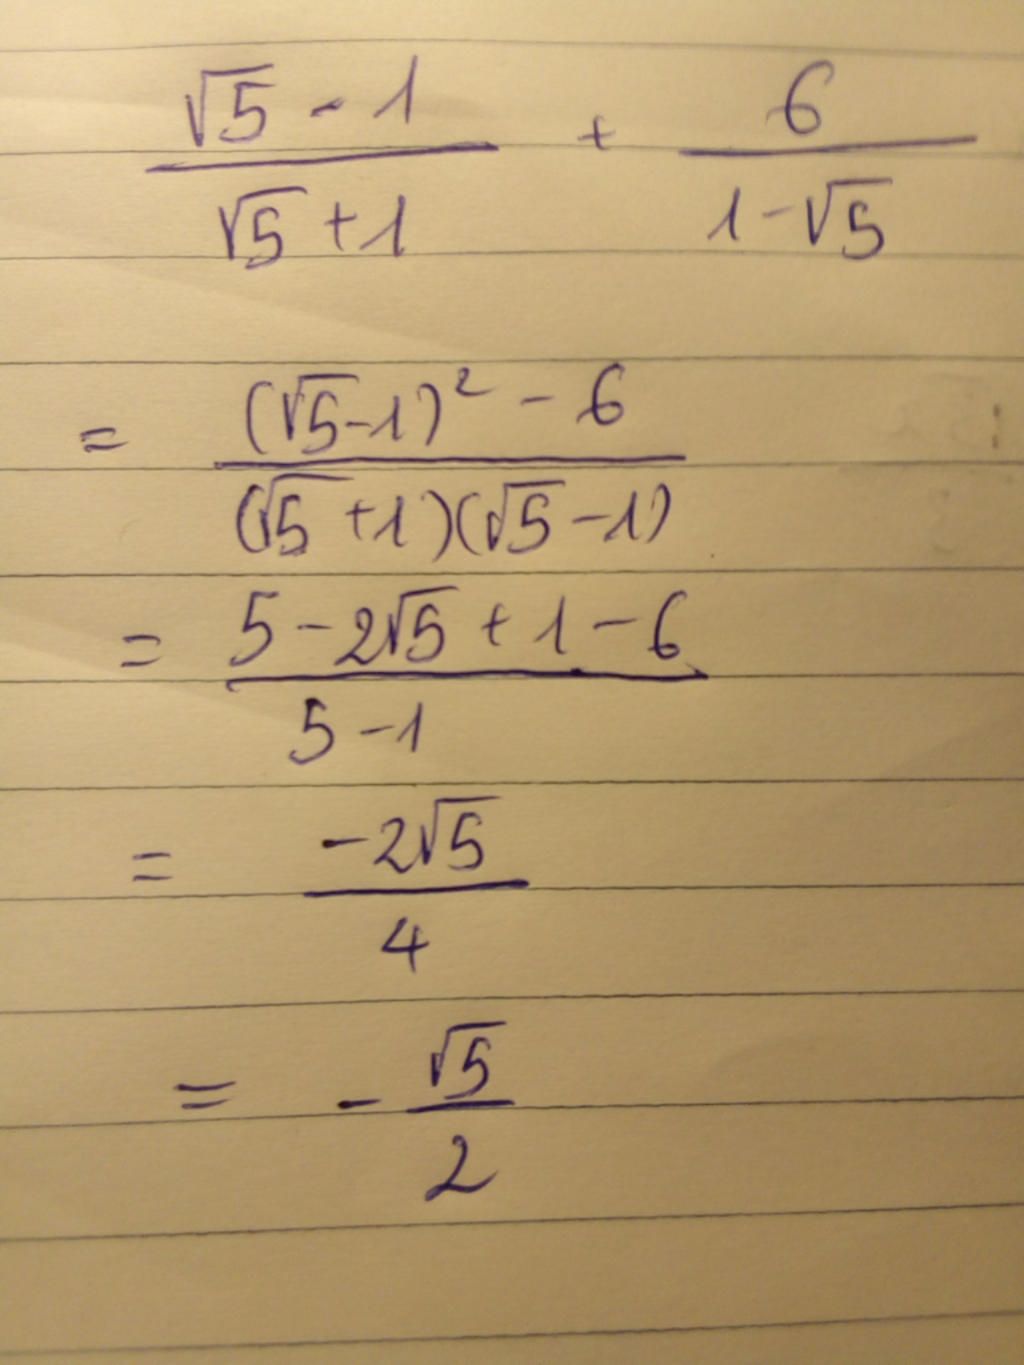 √5 - 1 / √5 + 1 + 6 / 1 - √5
= (√5 - 1)² - 6 / (√5 + 1)(√5 - 1)
= 5 - 2√5 + 1 - 6 / 5 - 1
= -2√5 / 4
= - √5 / 2